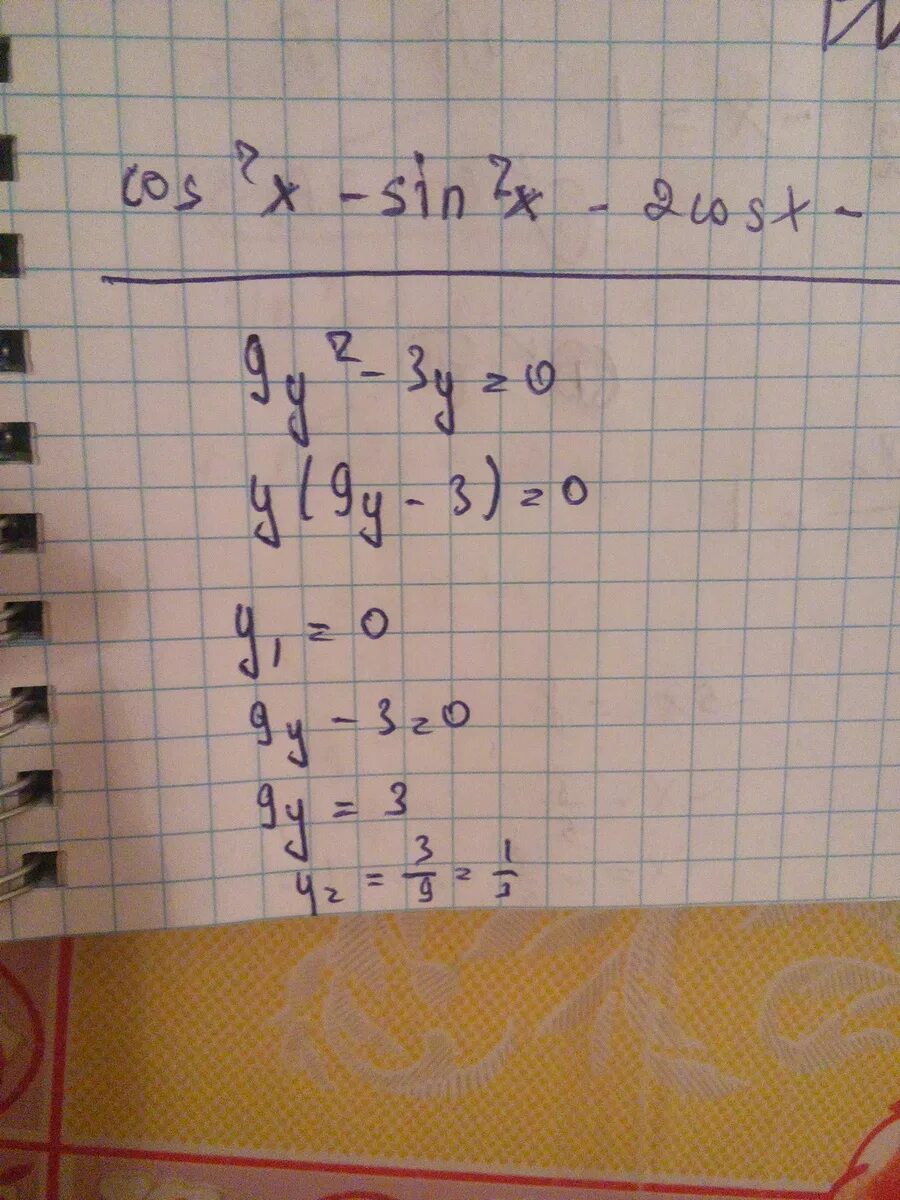 cos²x - sin²x - 2cosx -
9y² - 3y = 0
y(9y - 3) = 0
y₁ = 0
9y - 3 = 0
9y = 3
y₂ = 3/9 = 1/3